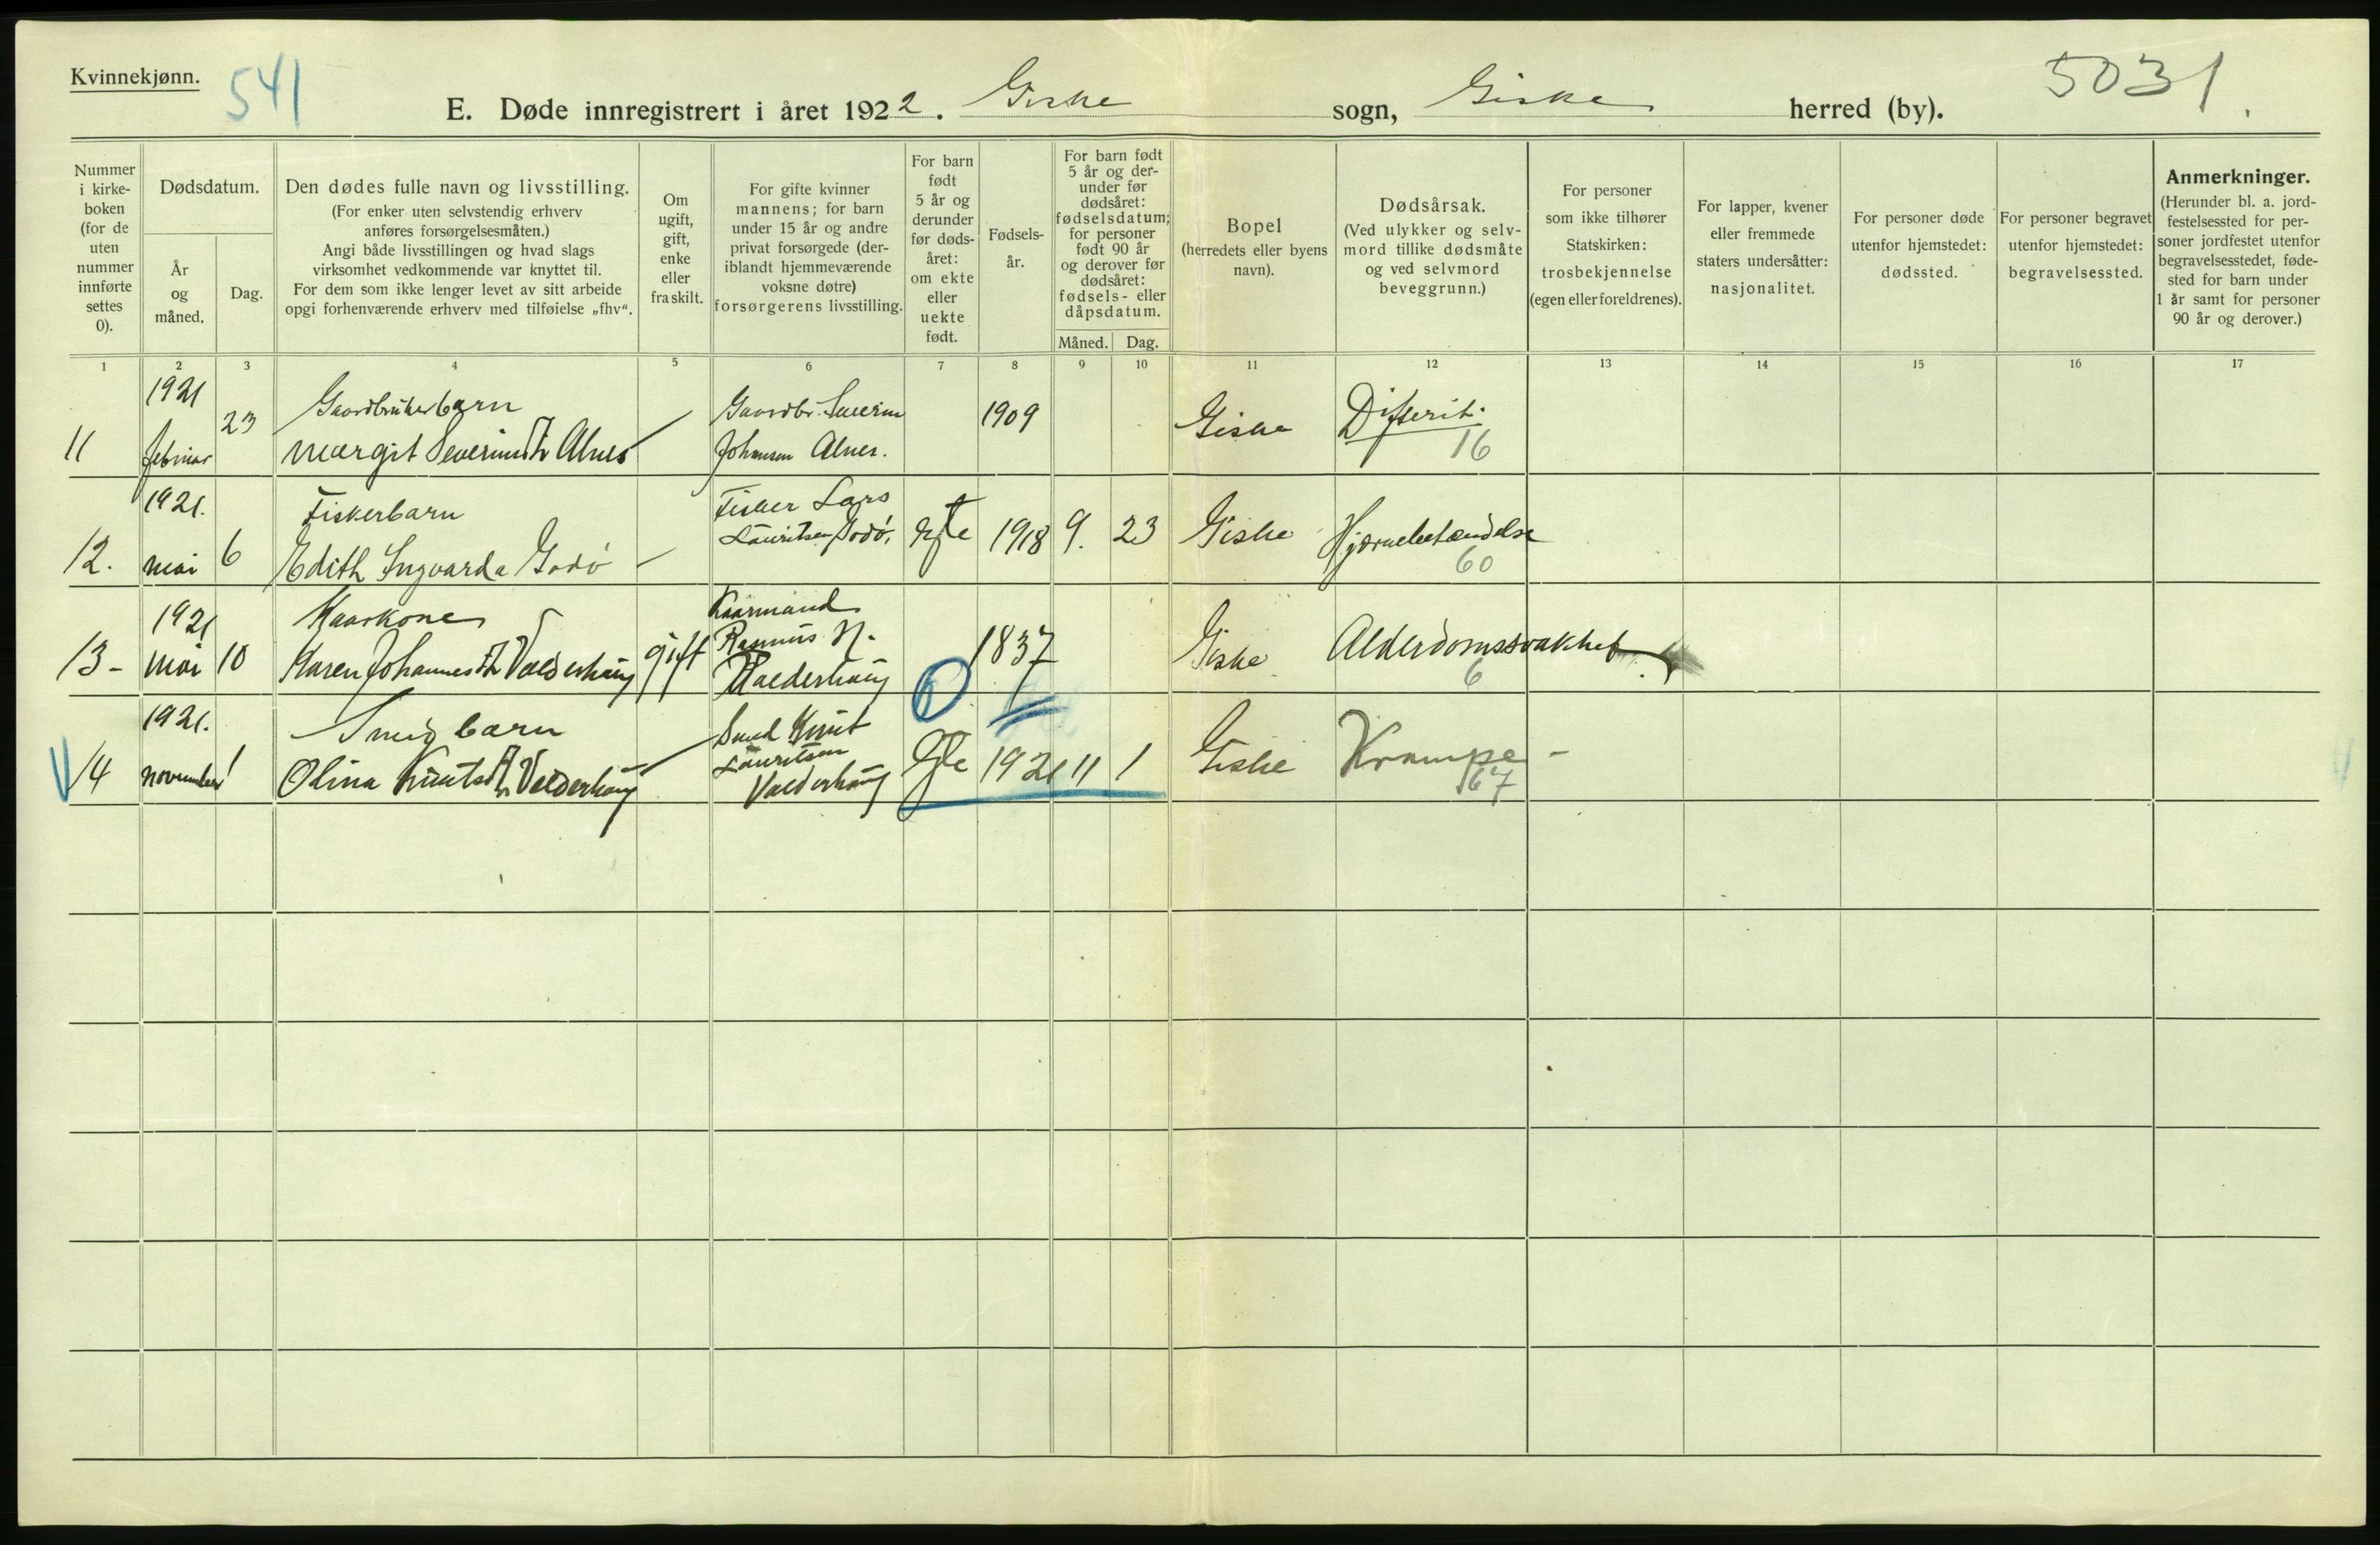 Kvinnekjønn.
541
E. Døde innregistrert i året 1922. Giske sogn, Giske herred (by).
5031.
Nummer i kirke- boken (for de uten nummer innførte settes 0).
Dødsdatum.
År og måned.
Dag.
Den dødes fulle navn og livsstilling.
(For enker uten selvstendig erhverv
anføres forsørgelsesmåten.)
Angi både livsstillingen og hvad slags
virksomhet vedkommende var knyttet til.
For dem som ikke lenger levet av sitt arbeide
opgi forhenværende erhverv med tilføielse „fhv“.
Om ugift, gift, enke eller fraskilt.
For gifte kvinner
mannens; for barn
under 15 år og andre
privat forsørgede (der-
iblandt hjemmeværende
voksne døtre)
forsørgerens livsstilling.
For barn født 5 år og derunder før døds- året: om ekte eller uekte født.
Fødsels- år.
For barn født
5 år og der-
under før
dødsåret:
fødselsdatum;
for personer
født 90 år
og derover før
dødsåret:
fødsels- eller
dåpsdatum.
Måned. Dag.
Bopel
(herredets eller byens
navn).
Dødsårsak.
(Ved ulykker og selv-
mord tillike dødsmåte
og ved selvmord
beveggrunn.)
For personer
som ikke tilhører
Statskirken:
trosbekjennelse
(egen eller foreldrenes).
For lapper, kvener
eller fremmede
staters undersåtter:
nasjonalitet.
For personer døde
utenfor hjemstedet:
dødssted.
For personer begravet
utenfor hjemstedet:
begravelsessted.
Anmerkninger.
(Herunder bl. a. jord-
festelsessted for per-
soner jordfestet utenfor
begravelsesstedet, føde-
sted for barn under
1 år samt for personer
90 år og derover.)
1 2 3 4 5 6 7 8 9 10 11 12 13 14 15 16 17
1921 Gaardbrukerbarn Gaardbr. Severin
11 februar 23 Margit Severinsdtr Alnes Johansen Alnes. 1909 Giske Difterit. 16
1921. Fiskerbarn Fisker Lars
12. mai 6 Edith Ingvarda Godø Lauritsen Godø. Egte 1918 9. 23 Giske Hjernebetændelse 60
1921 Kaarkone Kaarmand
13- mai 10 Karen Johannesdtr Valderhaug gift Rasmus N. Valderhaug 1837 Giske Alderdomssvakhet 6
1921. Smedbarn Smed Knut
14 november 1 Olina Knutsdtr Valderhaug Lauritsen Valderhaug Egte 1921 11 1 Giske Krampe - 67